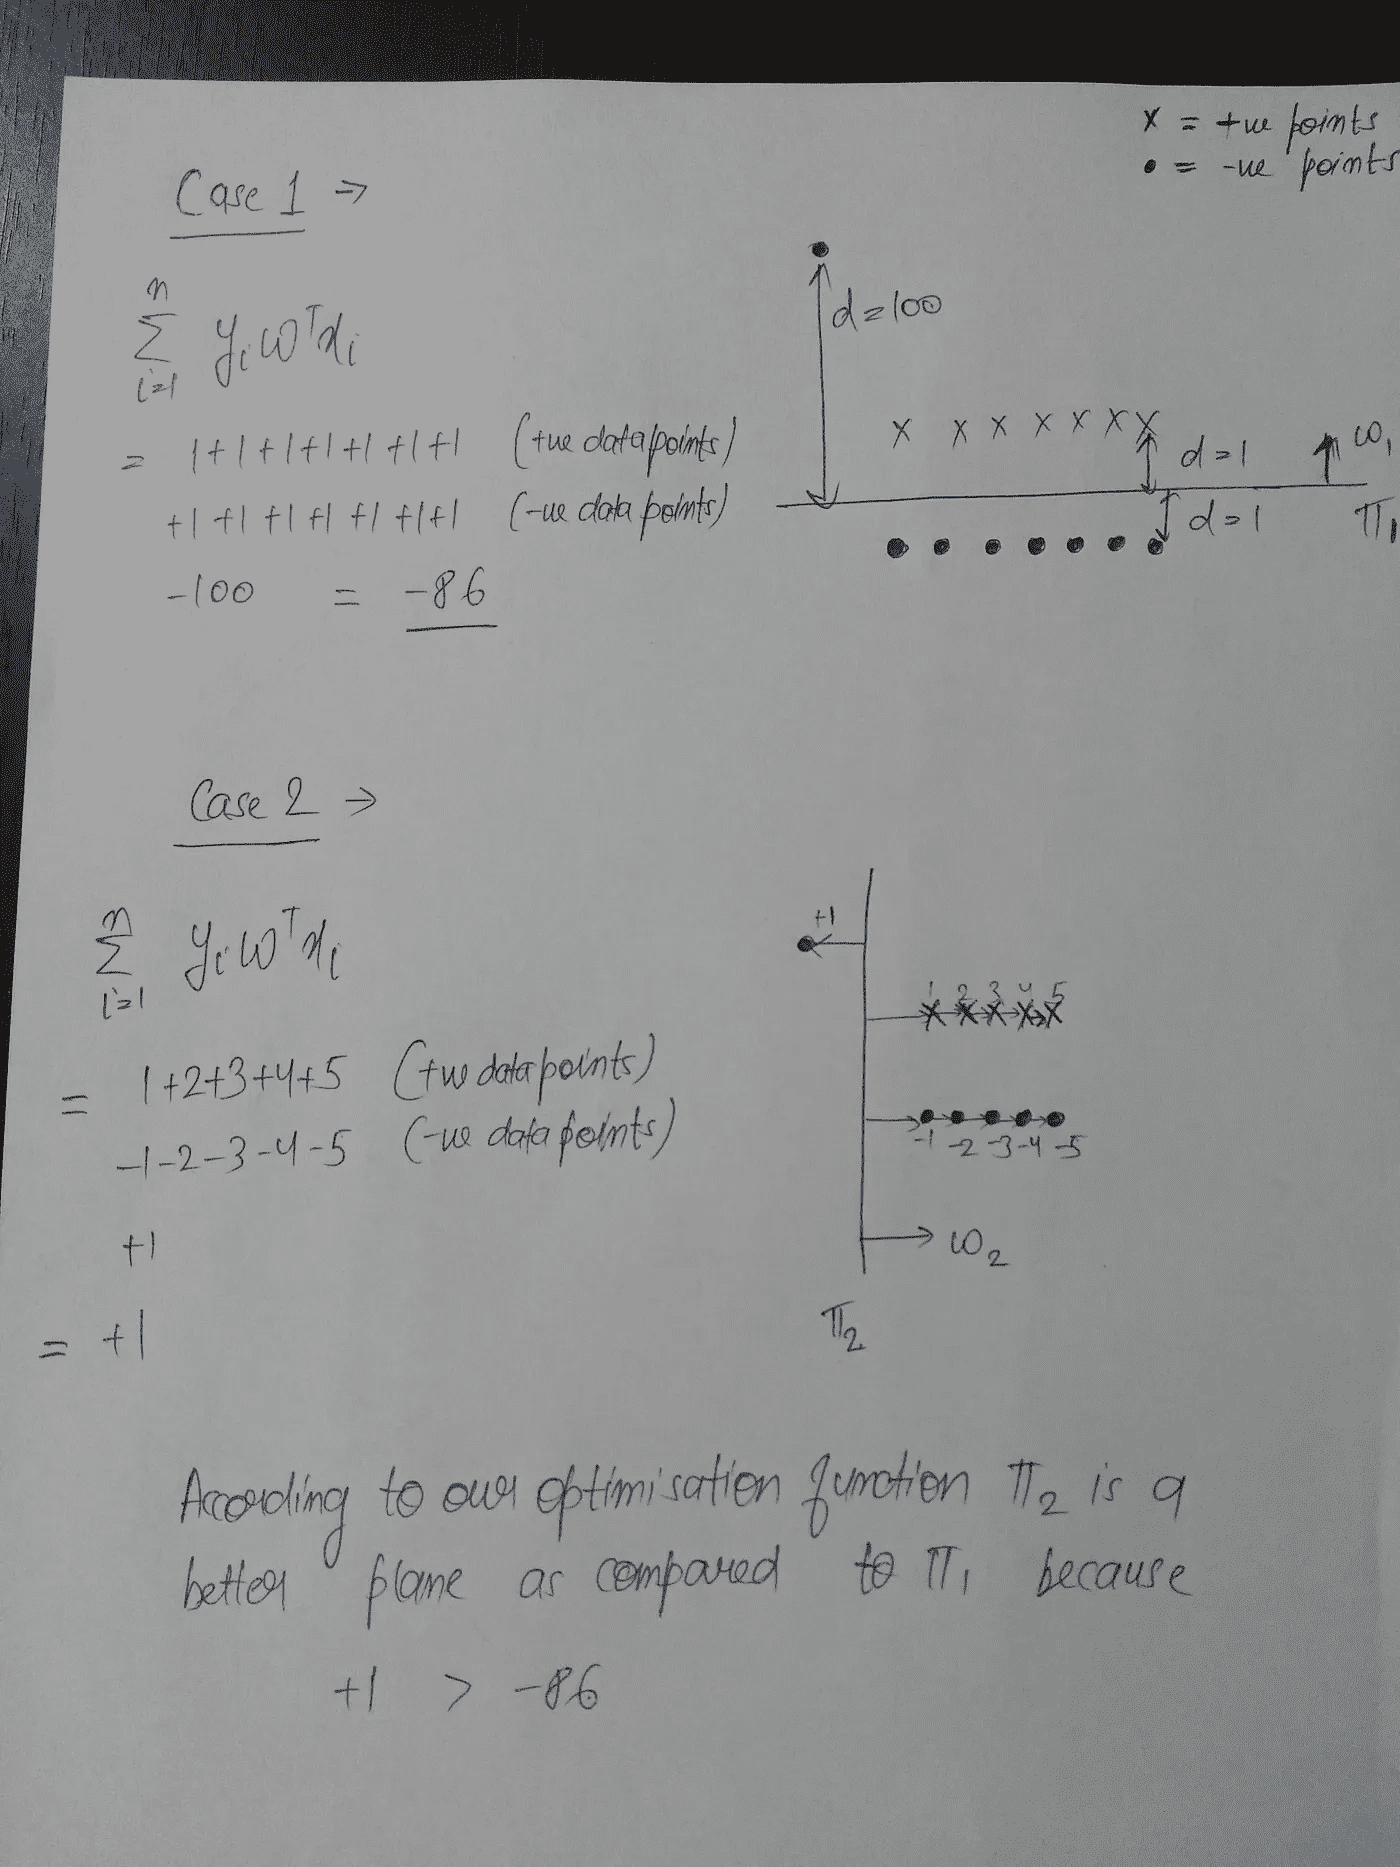 x = +ve points
• = -ve points
Case 1 →
n
Σ yᵢ ωᵀxᵢ
i=1
= 1+1+1+1+1+1+1 (+ve datapoints)
+1+1+1+1+1+1+1 (-ve data points)
-100 = -86
d=100
x x x x x x x
d=1
ω₁
d=1
π₁
Case 2 →
n
Σ yᵢ ωᵀxᵢ
i=1
= 1+2+3+4+5 (+ve datapoints)
-1-2-3-4-5 (-ve datapoints)
+1
= +1
+1
1 2 3 4 5
x x x x x
-1 -2 -3 -4 -5
ω₂
π₂
According to our optimisation function π₂ is a
better plane as compared to π₁ because
+1 > -86